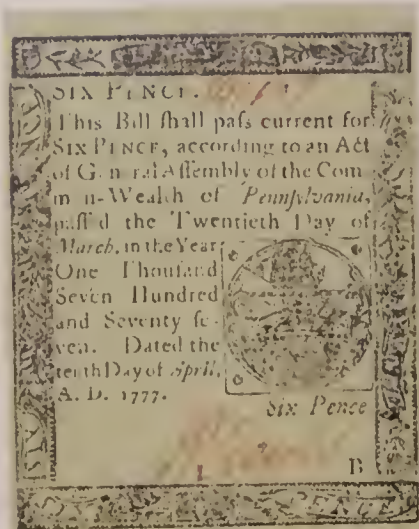 SIX PENCE.
This Bill ſhall paſs current for
SIX PENCE, according to an Act
of General Aſſembly of the Com
mon-Wealth of Pennſylvania,
paſſed the Twentieth Day of
March, in the Year
One Thouſand
Seven Hundred
and Seventy ſe-
ven. Dated the
tenth Day of April,
A. D. 1777.
Six Pence
B
PENCE